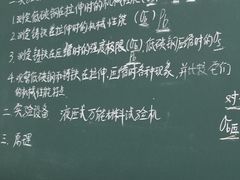 1. 测定低碳钢在拉伸时的机械性能
2. 测定铸铁在拉伸时的机械性能(σb)
3. 测定铸铁在压缩时的强度极限(σb) 低碳钢压缩时的σs
4. 观察低碳钢和铸铁在拉伸、压缩时各种现象,并比较它们
的机械性能特点
二. 实验设备 液压式万能材料试验机
三. 原理
对
σb